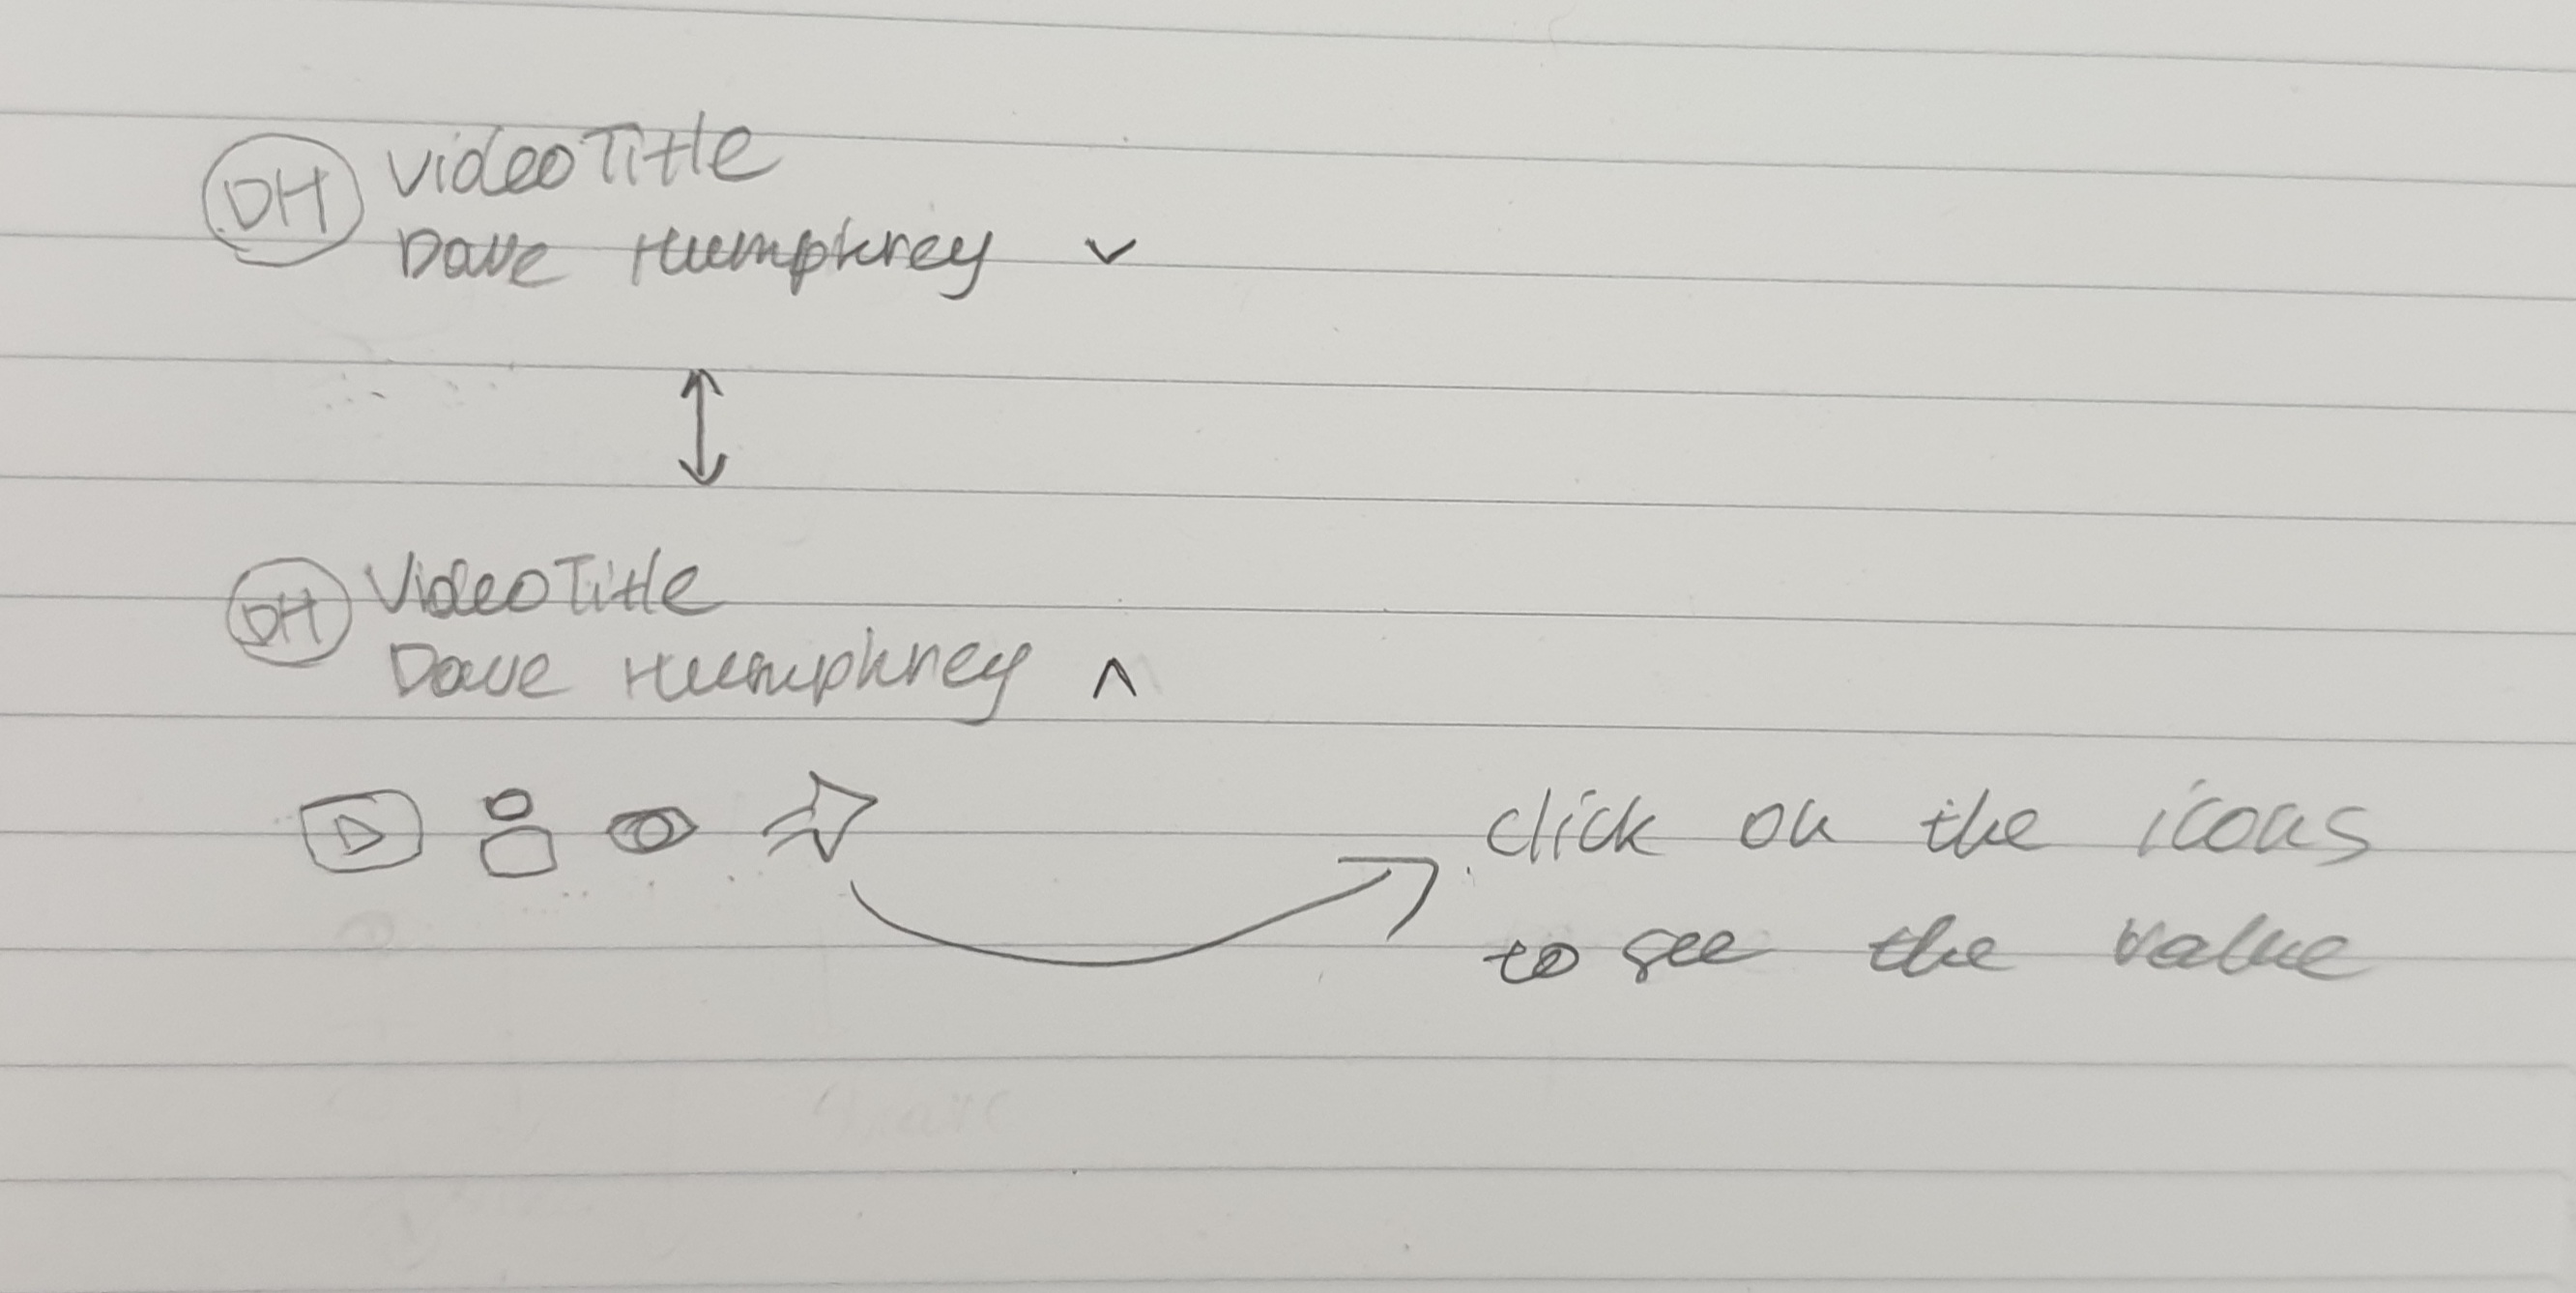 DH
VideoTitle
Dave Humphrey
DH
VideoTitle
Dave Humphrey
click on the icons
to see the value